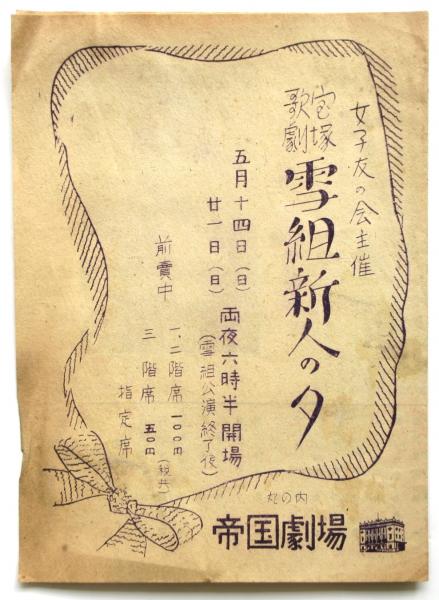 女子友の会主催
宝塚歌劇
雪組新人の夕
五月十四日（日）
廿一日（日）
両夜六時半開場
（雪組公演終了後）
前賣中
一、二階席 一〇〇円
三階席 五〇円（税共）
指定席
丸の内
帝国劇場